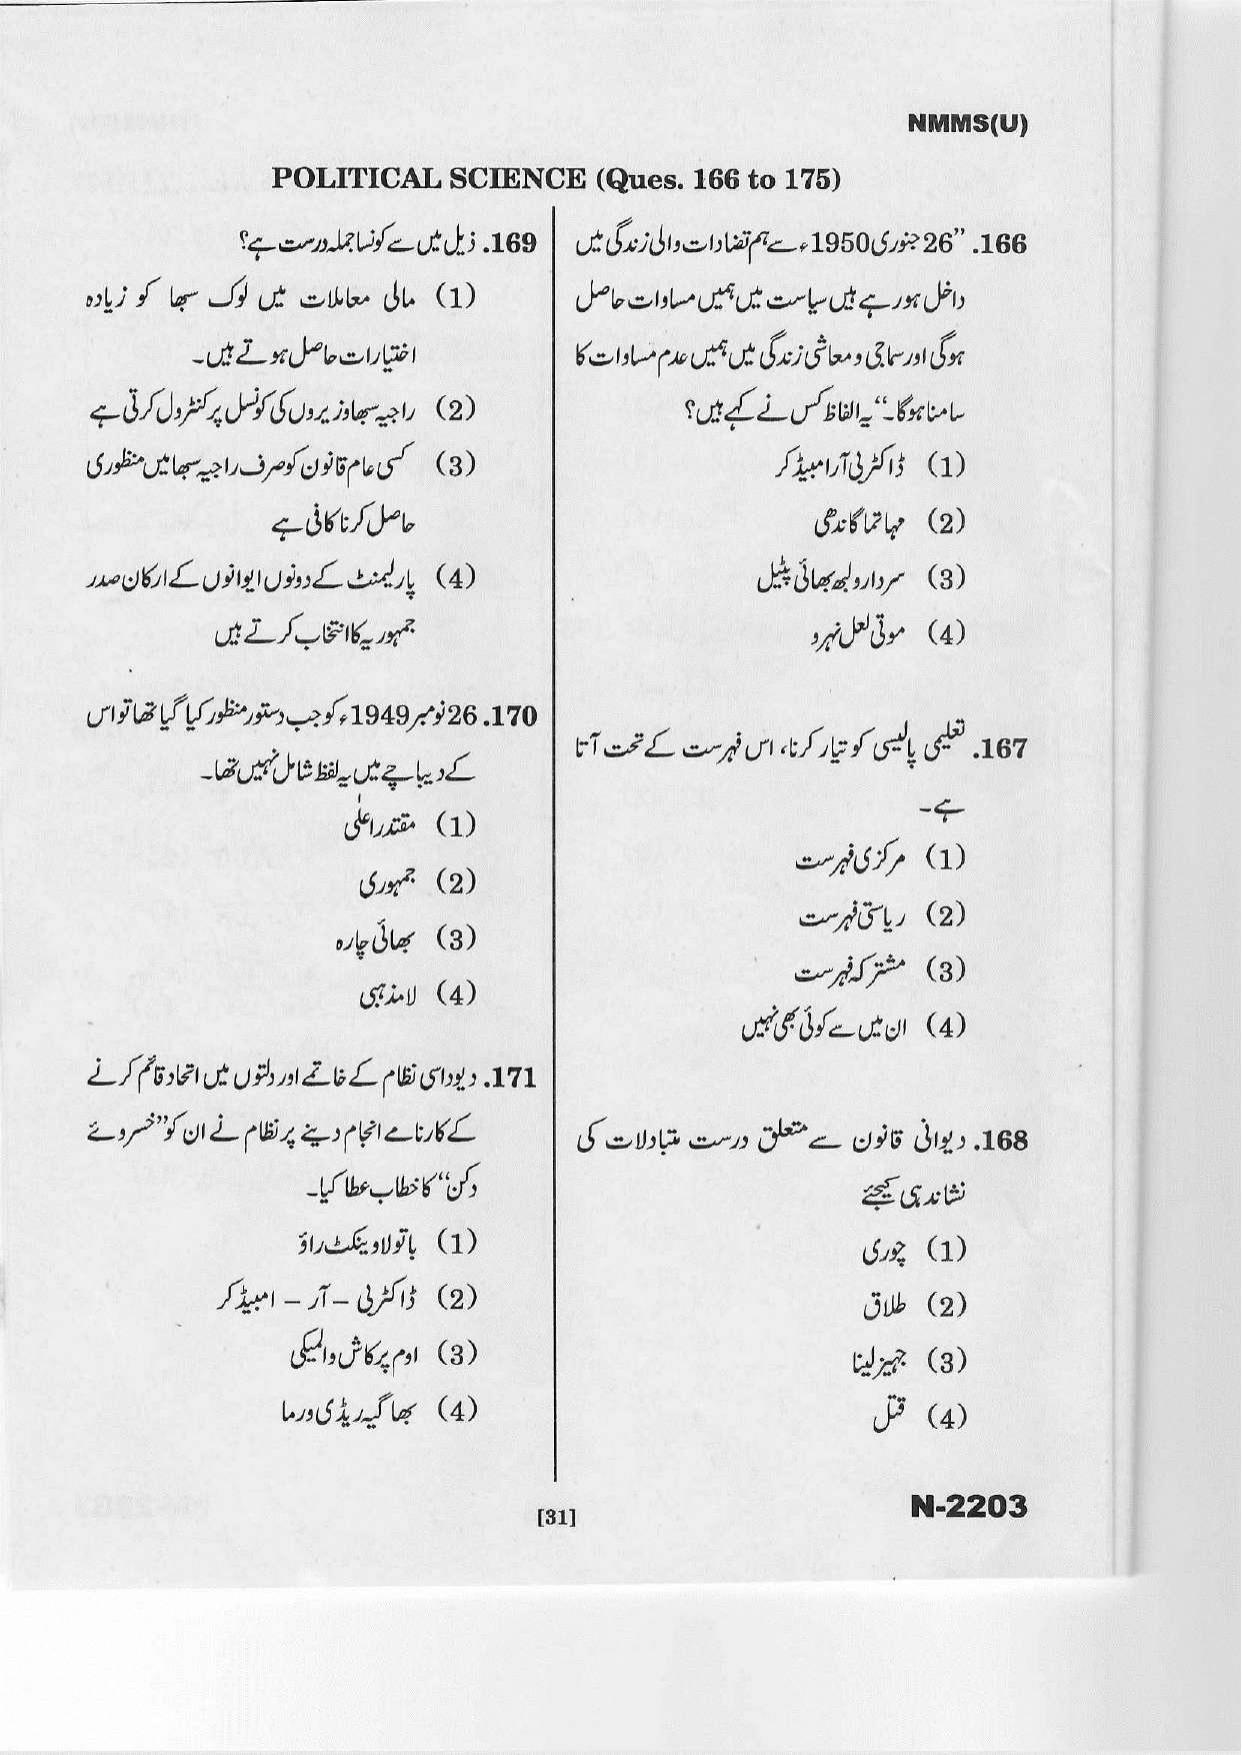 NMMS(U)
POLITICAL SCIENCE (Ques. 166 to 175)
166. ”26 جنوری 1950ء سے ہم تضادات والی زندگی میں
داخل ہو رہے ہیں سیاست میں ہمیں مساوات حاصل
ہوگی اور سماجی و معاشی زندگی میں ہمیں عدم مساوات کا
سامنا ہوگا۔“ یہ الفاظ کس نے کہے ہیں؟
(1) ڈاکٹر بی آر امبیڈکر
(2) مہاتما گاندھی
(3) سردار ولبھ بھائی پٹیل
(4) موتی لعل نہرو
167. تعلیمی پالیسی کو تیار کرنا، اس فہرست کے تحت آتا
ہے۔
(1) مرکزی فہرست
(2) ریاستی فہرست
(3) مشترکہ فہرست
(4) ان میں سے کوئی بھی نہیں
168. دیوانی قانون سے متعلق درست متبادلات کی
نشاندہی کیجئے
(1) چوری
(2) طلاق
(3) جہیز لینا
(4) قتل
169. ذیل میں سے کونسا جملہ درست ہے؟
(1) مالی معاملات میں لوک سبھا کو زیادہ
اختیارات حاصل ہوتے ہیں۔
(2) راجیہ سبھا وزیروں کی کونسل پر کنٹرول کرتی ہے
(3) کسی عام قانون کو صرف راجیہ سبھا میں منظوری
حاصل کرنا کافی ہے
(4) پارلیمنٹ کے دونوں ایوانوں کے ارکان صدر
جمہوریہ کا انتخاب کرتے ہیں
170. 26 نومبر 1949ء کو جب دستور منظور کیا گیا تھا تو اس
کے دیباچے میں یہ لفظ شامل نہیں تھا۔
(1) مقتدر اعلٰی
(2) جمہوری
(3) بھائی چارہ
(4) لا مذہبی
171. دیوداسی نظام کے خاتمے اور دلتوں میں اتحاد قائم کرنے
کے کارنامے انجام دینے پر نظام نے ان کو ”خسروئے
دکن“ کا خطاب عطا کیا۔
(1) باتولا وینکٹ راؤ
(2) ڈاکٹر بی – آر – امبیڈکر
(3) اوم پرکاش والمیکی
(4) بھاگیہ ریڈی ورما
[31]
N-2203